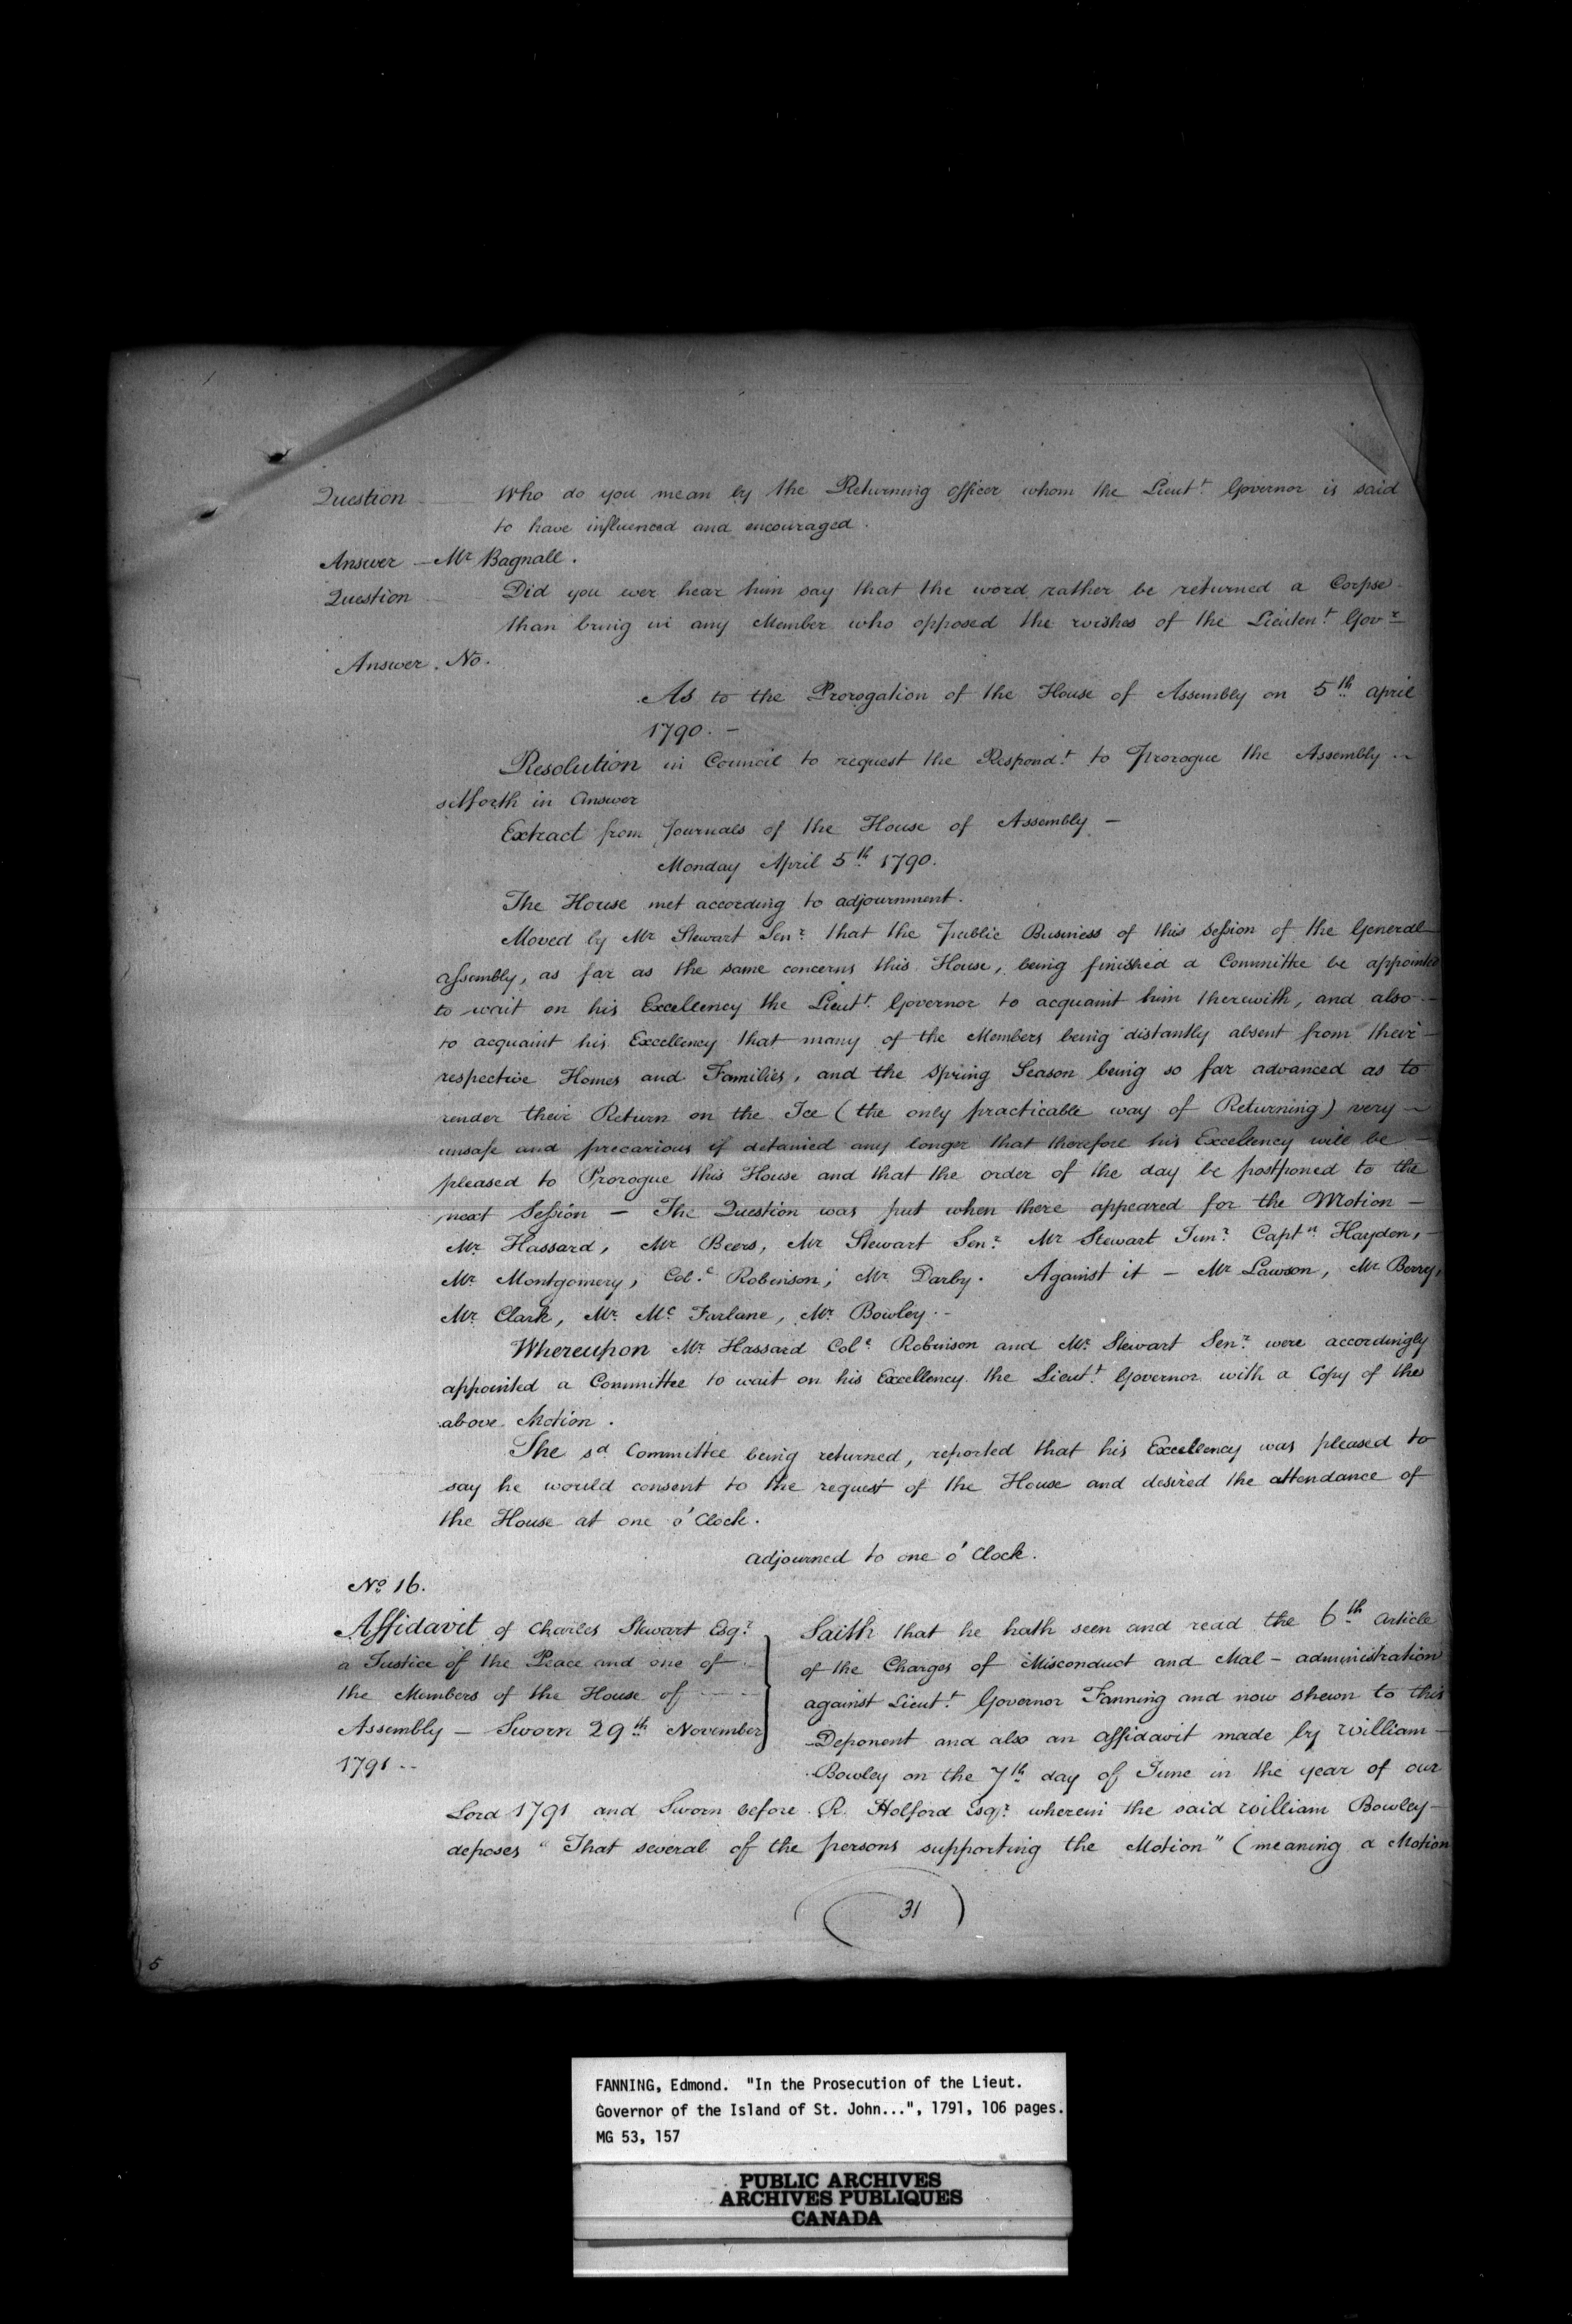 Question — Who do you mean by the Returning officer whom the Lieut.t Governor is said
to have influenced and encouraged.
Answer — Mr Bagnall.
Question — Did you ever hear him say that the word rather be returned a Corpse
than bring in any Member who opposed the wishes of the Lieuten.t Gov.r
Answer. No.
As to the Prorogation of the House of Assembly on 5th april
1790. —
Resolution in Council to request the Respond.t to Prorogue the Assembly —
setforth in Answer
Extract from Journals of the House of Assembly —
Monday April 5th 1790.
The House met according to adjournment.
Moved by Mr Stewart Sen.r that the public Business of this Session of the General
assembly, as far as the same concerns this House, being finished a Committee be appointed
to wait on his Excellency the Lieut.t Governor to acquaint him therewith, and also —
to acquaint his Excellency that many of the Members being distantly absent from their —
respective Homes and Families, and the Spring Season being so far advanced as to
render their Return on the Ice (the only practicable way of Returning) very —
unsafe and precarious if detained any longer that therefore his Excellency will be —
pleased to Prorogue this House and that the order of the day be postponed to the
next Session — The Question was put when there appeared for the Motion —
Mr. Hassard, Mr Beers, Mr Stewart Sen.r Mr Stewart Jun.r Capt.n Haydon, —
Mr. Montgomery, Col.l Robinson, Mr Darby. Against it — Mr Lawson, Mr Berry,
Mr. Clark, Mr. Mc Farlane, Mr. Bowley. —
Whereupon Mr Hassard Col.l Robinson and Mr. Stewart Sen.r were accordingly
appointed a Committee to wait on his Excellency the Lieut.t Governor with a Copy of the
above Motion.
The sd Committee being returned, reported that his Excellency was pleased to
say he would consent to the request of the House and desired the attendance of
the House at one o'Clock.
adjourned to one o'Clock.
No 16.
Affidavit of Charles Stewart Esq.r
a Justice of the Peace and one of
the Members of the House of
Assembly — Sworn 29th November
1791 —
Saith that he hath seen and read the 6th article
of the Charges of Misconduct and Mal-administration
against Lieut.t Governor Fanning and now shewn to this
Deponent and also an affidavit made by William —
Bowley on the 7th day of June in the year of our
Lord 1791 and Sworn before R. Holford Esq.r wherein the said William Bowley —
deposes "That several of the persons supporting the Motion" (meaning a Motion
31
5
FANNING, Edmond. "In the Prosecution of the Lieut.
Governor of the Island of St. John...", 1791, 106 pages.
MG 53, 157
PUBLIC ARCHIVES
ARCHIVES PUBLIQUES
CANADA